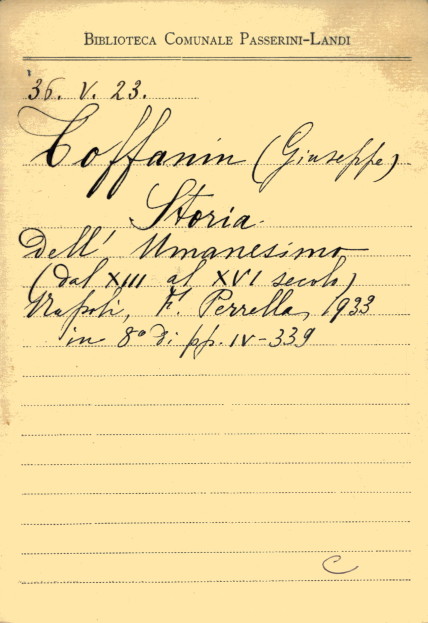 BIBLIOTECA COMUNALE PASSERINI-LANDI
36. V. 23.
Toffanin (Giuseppe)
Storia
Dell' Umanesimo
(dal XIII al XVI secolo)
Napoli, F. Perrella, 1933
in 8° di pp. IV-339
C